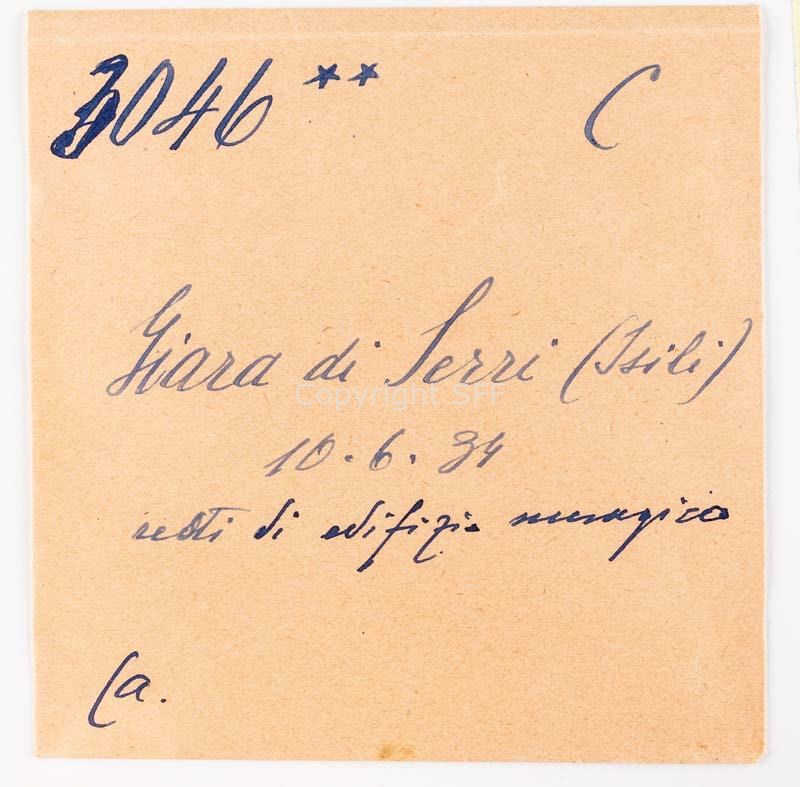 3046 ** C
Giara di Serri (Isili)
Copyright SFF
10.6.34
resti di edifizio nuragico
Ca.